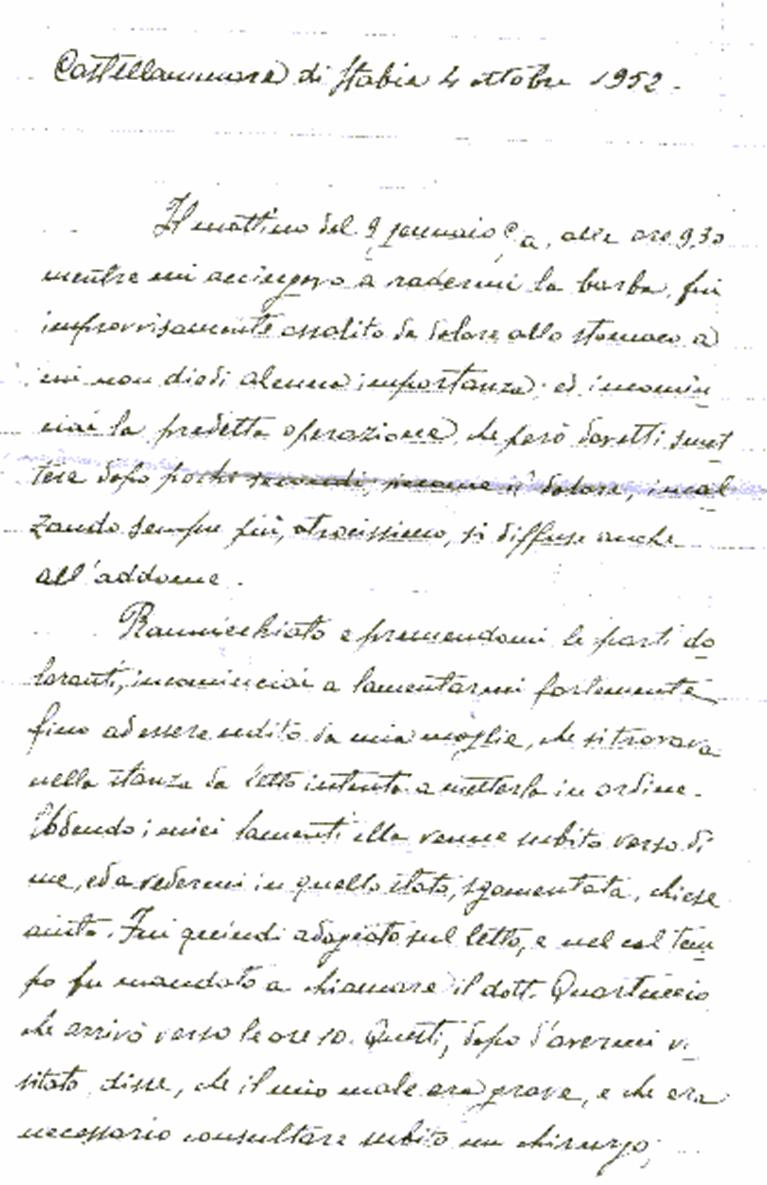 Castellammare di Stabia 4 ottobre 1952.
Il mattino del 9 gennaio c.a., alle ore 9,30
mentre mi accingevo a radermi la barba, fui
improvvisamente assalito da dolore allo stomaco a
cui non diedi alcuna importanza; ed incomin
ciai la predetta operazione, che però dovetti smet
tere dopo pochi secondi, perchè il dolore, incal
zando sempre più, atrocissimo, si diffuse anche
all'addome.
Rannicchiato e premendomi le parti do
loranti, incominciai a lamentarmi fortemente
fino ad essere udito da mia moglie, che si trovava
nella stanza da letto intenta a metterla in ordine.
Udendo i miei lamenti ella venne subito verso di
me, ed a vedermi in quello stato, sgomentata, chiese
aiuto. Fui quindi adagiato sul letto, e nel col tem
po fu mandato a chiamare il dott. Quartuccio
che arrivò verso le ore 10. Questi, dopo d'avermi vi
sitato, disse, che il mio male era grave, e che era
necessario consultare subito un chirurgo;